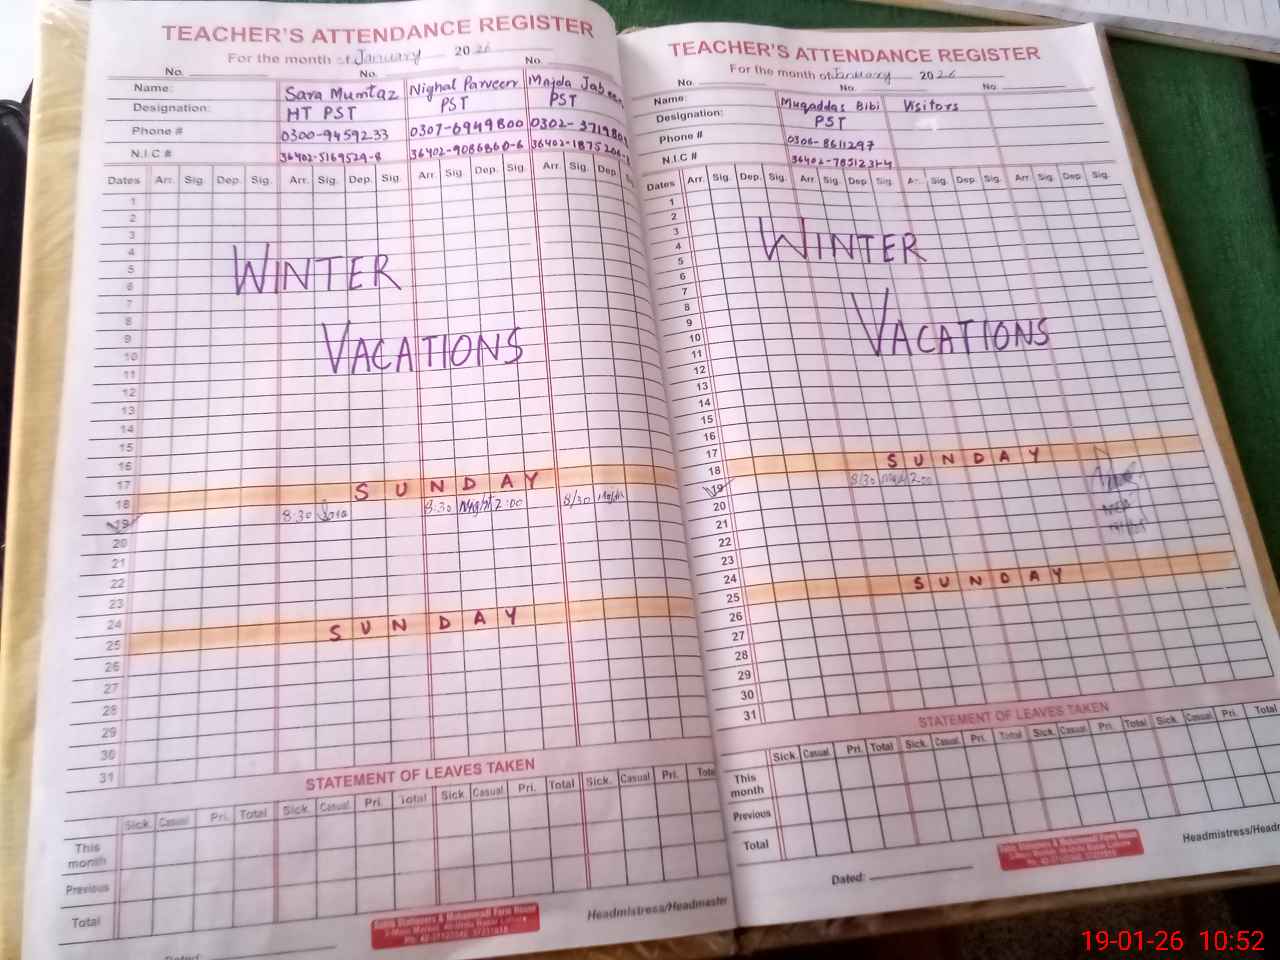 TEACHER'S ATTENDANCE REGISTER
For the month of January 2026
No. No. No.
Name: Sara Mumtaz Nighal Parveen Majda Jabeen
Designation: HT PST PST PST
Phone # 0300-9459233 0307-6949800 0302-3719
N.I.C # 36402-5169529-8 36402-9086860-6 36402-1875
Dates Arr. Sig. Dep. Sig. Arr. Sig. Dep. Sig. Arr. Sig. Dep. Sig. Arr. Sig. Dep.
1
2
3
4
5
6
WINTER
7
8
9
10
11
VACATIONS
12
13
14
15
16
17
18 SUNDAY
19 8:30 Sara 8:30 Nighl 2:00 8/30
20
21
22
23
24
25 SUNDAY
26
27
28
29
30
31
STATEMENT OF LEAVES TAKEN
Sick. Casual Pri. Total Sick. Casual. Pri. Total Sick. Casual. Pri. Total Sick. Casual Pri. Total
This month
Previous
Total
Headmistress/Headmaster
Dated:
TEACHER'S ATTENDANCE REGISTER
For the month of January 2026
No. No. No.
Name: Muqaddas Bibi Visitors
Designation: PST
Phone # 0306-8611297
N.I.C # 36402-7851231-4
Dates Arr. Sig. Dep. Sig. Arr. Sig. Dep. Sig. Arr. Sig. Dep. Sig. Arr. Sig. Dep. Sig.
1
2
3
4
5
WINTER
6
7
8
9
10
11
VACATIONS
12
13
14
15
16
17
18 SUNDAY
19 8/30 2:00
20
21
22
23
24
25 SUNDAY
26
27
28
29
30
31
STATEMENT OF LEAVES TAKEN
Sick. Casual. Pri. Total Sick. Casual. Pri. Total Sick. Casual. Pri. Total Sick. Casual. Pri. Total
This month
Previous
Total
Dated:
Headmistress/Head
19-01-26 10:52